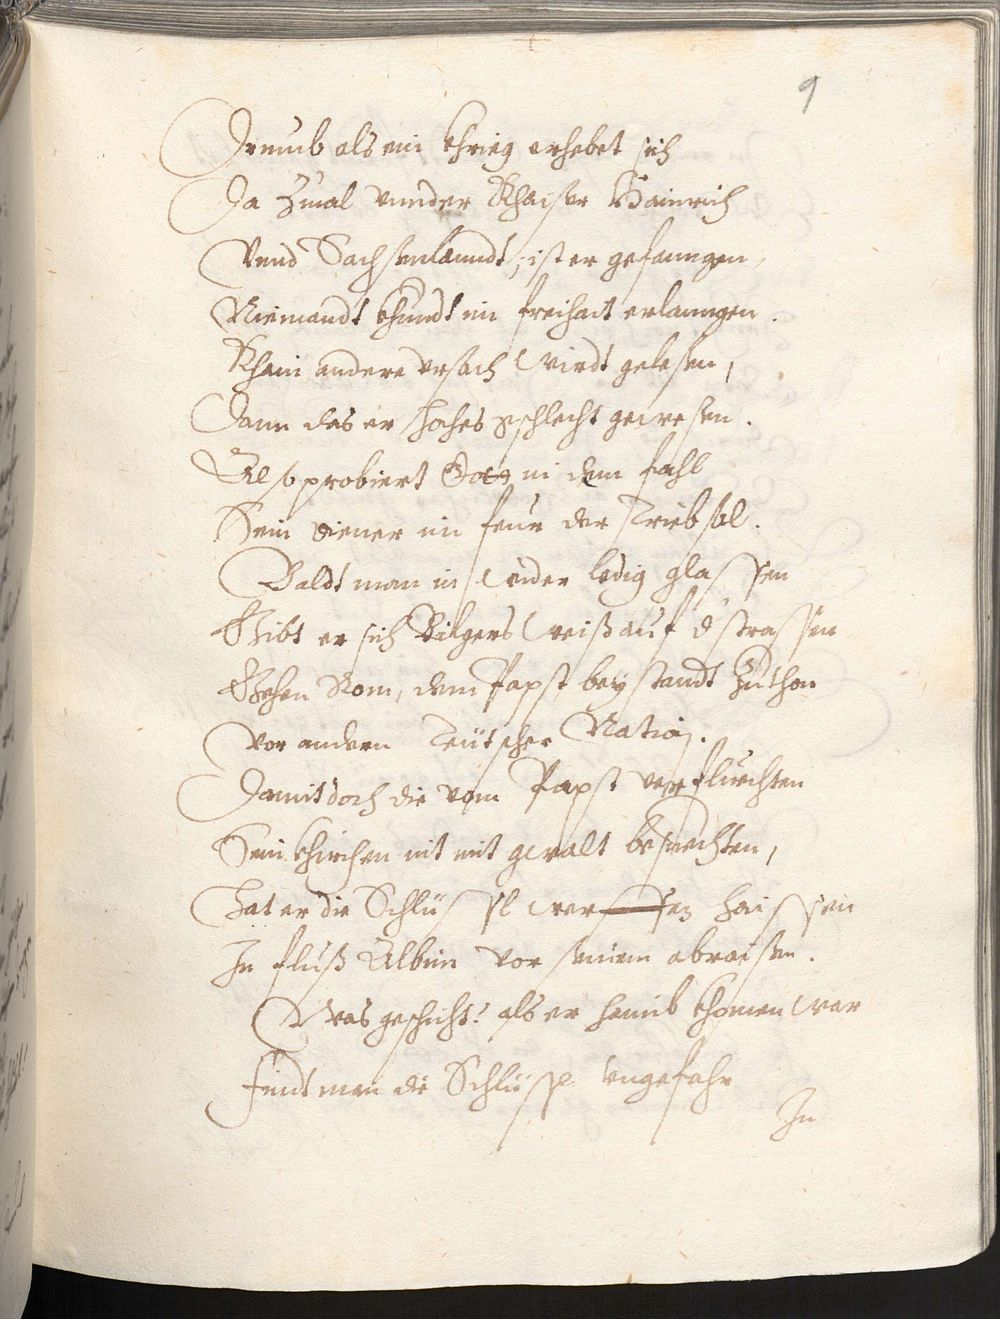 9
Drumb als ein khrieg erhebet sich
Da zmal vnnder Khaiser Hainrich
Vnnd Sachsenlanndt, ist er gefanngen,
Niemandt khundt im freihait erlanngen.
Khain andere vrsach wirdt gelesen,
Dann das er hohes gschlecht gewesen.
Also probiert Gott in dem fahl
Sein diener im feur der Triebsal.
Baldt man in wider ledig glassen
Gibt er sich Bilgers weiß auf d strassen
Gehen Rom, dem Papst beystandt zuthon
Vor andern Teütscher Nation.
Damit doch die vom Papst verfluechten
Sein khirchen nit mit gwalt besuechten,
Hat er die Schlüssl werffen haissen
In fluß Albim vor seinem abraisen.
Was gschicht? als er haimb khomen war
Findt man die Schlüssl vngefahr
In